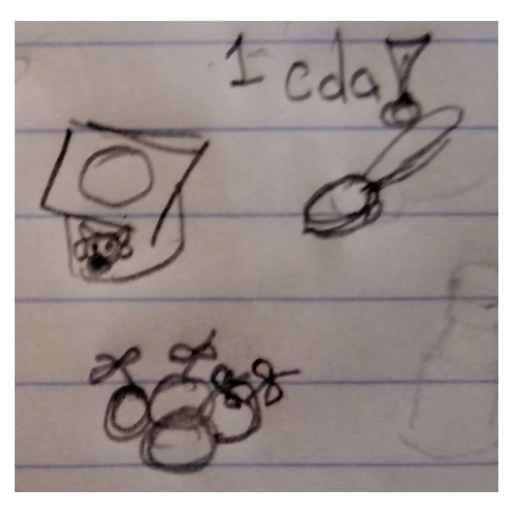 1 cda!